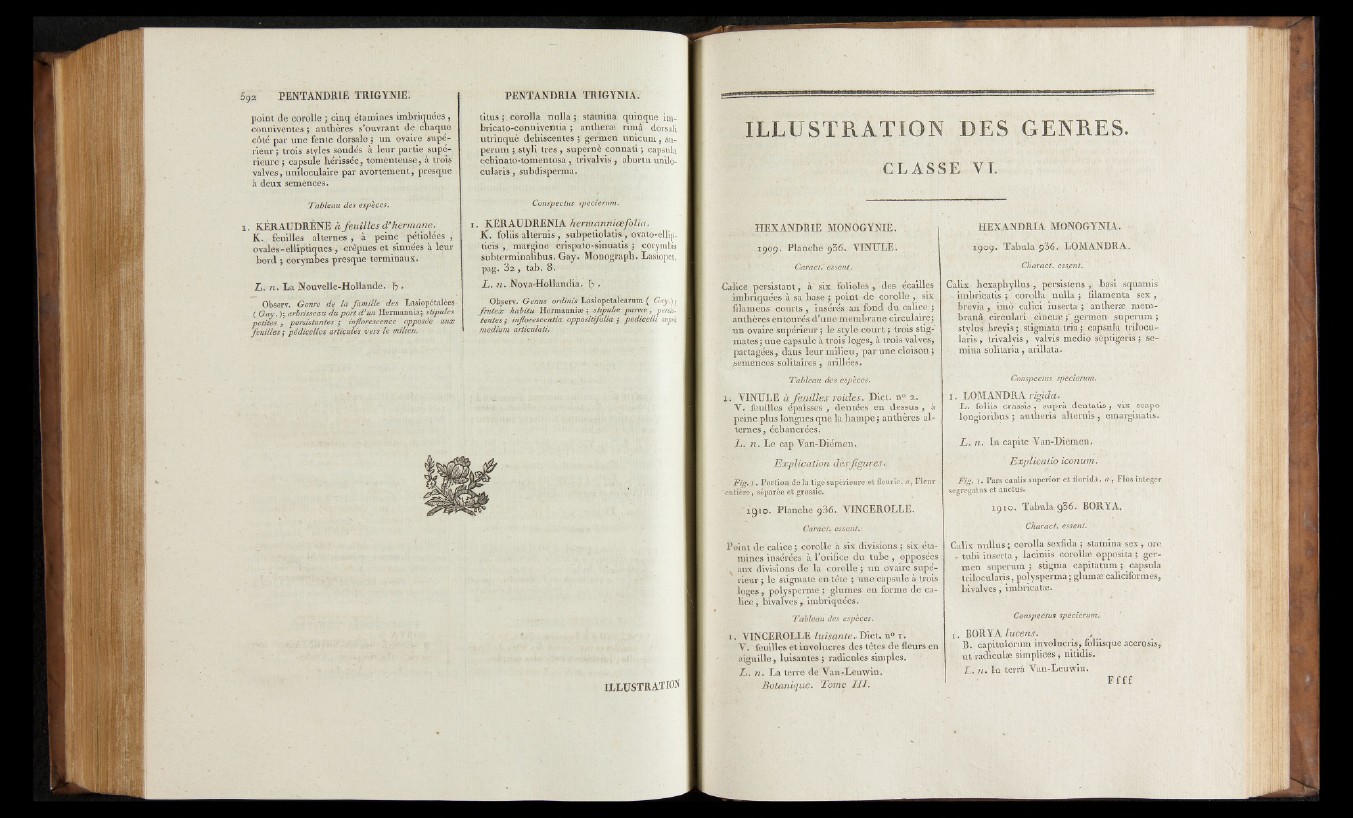 592 PENTANDRIE TRIGYNIE.
point de corolle ; cinq étamines imbriquées,
conniventes ; anthères s'ouvrant de chaque
côté par une fente dorsale ; un ovaire supé-
rieur ; trois styles soudés à leur partie supé-
rieure ; capsule hérissée, tomenteuse, à trois
valves, uniloculaire par avortement, presque
à deux semences.
Tableau des espèces.
1. KÉRAUDRÈNE à feuilles d'hermane.
K. feuilles alternes, à peine pétiolées,
ovales-elliptiques, crêpues et sinuées à leur
bord ; corymbes presque terminaux.
L. n. La Nouvelle-Hollande. ♄.
Observ. Genre de la famille des Lasiopétalées
( Gay. ); arbrisseau du port d'un Hermannia; stipules
petites, persistantes ; inflorescence opposée aux
feuilles ; pédicelles articulés vers le milieu.
PENTANDRIA TRIGYNIA.
titus ; corolla nulla ; stamina quinque im-
bricato-conniventia ; antheræ rimâ dorsali
utrinquè dehiscentes ; germen unicum, su-
perum ; styli tres, supernè connati ; capsula
echinato-tomentosa, trivalvis, abortu unilo-
cularis, subdisperma.
Conspectus specierum.
1. KERAUDRENIA hermanniæfolia.
K. foliis alternis, subpetiolatis, ovato-ellip-
ticis, margine crispato-sinuatis ; corymbis
subterminalibus. Gay. Monograph. Lasiopet.
pag. 32, tab. 8.
L. n. Nova-Hollandia. ♄.
Observ. Genus ordinis Lasiopetalearum ( Gay.);
frutex habitu Hermanniæ ; stipulæ parvæ, persis-
tentes ; inflorescentia oppositifolia ; pedicelli suprà
medium articulati.
ILLUSTRATION
ILLUSTRATION DES GENRES.
CLASSE VI.
HEXANDRIE MONOGYNIE.
1909. Planche 936. VINULE.
Caract. essent.
Calice persistant, à six folioles, des écailles
imbriquées à sa base ; point de corolle, six
filamens courts, insérés au fond du calice ;
anthères entourés d'une membrane circulaire;
un ovaire supérieur ; le style court ; trois stig-
mates ; une capsule à trois loges, à trois valves,
partagées, dans leur milieu, par une cloison ;
semences solitaires, arillées.
Tableau des espèces.
1. VINULE à feuilles roides. Dict. n° 2.
V. feuilles épaisses, dentées en dessus, à
peine plus longues que la hampe ; anthères al-
ternes, échancrées.
L. n. Le cap Van-Diémen.
Explication des figures.
Fig. 1. Portion de la tige supérieure et fleurie. a, Fleur
entière, séparée et grossie.
1910. Planche 936. VINCEROLLE.
Caract. essent.
Point de calice ; corolle à six divisions ; six éta-
mines insérées à l'orifice du tube, opposées
aux divisions de la corolle ; un ovaire supé-
rieur ; le stigmate en tête ; une capsule à trois
loges, polysperme ; glumes en forme de ca-
lice, bivalves, imbriquées.
Tableau des espèces.
1. VINCEROLLE luisante. Dict. n° 1.
V. feuilles et involucres des têtes de fleurs en
aiguille, luisantes ; radicules simples.
L. n. La terre de Van-Leuwin.
Botanique. Tome III.
HEXANDRIA MONOGYNIA.
1909. Tabula 936. LOMANDRA.
Charact. essent.
Calix hexaphyllus, persistens, basi squamis
imbricatis ; corolla nulla ; filamenta sex,
brevia, imò calici inserta ; antheræ mem-
branâ circulari cinctæ ; germen superum ;
stylus brevis ; stigmata tria ; capsula trilocu-
laris, trivalvis, valvis medio septigeris ; se-
mina solitaria, arillata.
Conspectus specierum.
1. LOMANDRA rigida.
L. foliis crassis, suprà dentatis, vix scapo
longioribus ; antheris alternis, emarginatis.
L. n. In capite Van-Diemen.
Explicatio iconum.
Fig. 1. Pars caulis superior et florida. a, Flos integer
segregatus et auctus.
1910. Tabula 936. BORYA.
Charact. essent.
Calix nullus ; corolla sexfida ; stamina sex, ore
tubi inserta, laciniis corollæ opposita ; ger-
men superum ; stigma capitatum ; capsula
trilocularis, polysperma ; glumæ caliciformes,
bivalves, imbricatæ.
Conspectus specierum.
1. BORYA lucens.
B. capitulorum involucris, foliisque acerosis,
ut radiculæ simplices, nitidis.
L. n. In terrâ Van-Leuwin.
Ffff